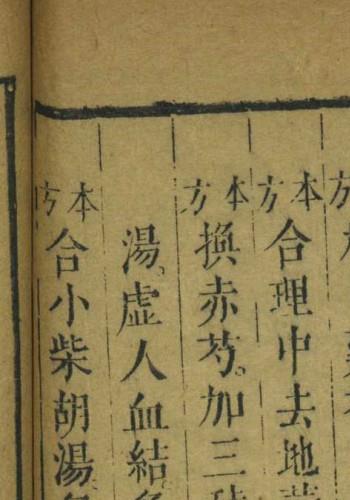 方
本方合理中去地
本方換赤芍加三
湯虛人血結
本方合小柴胡湯